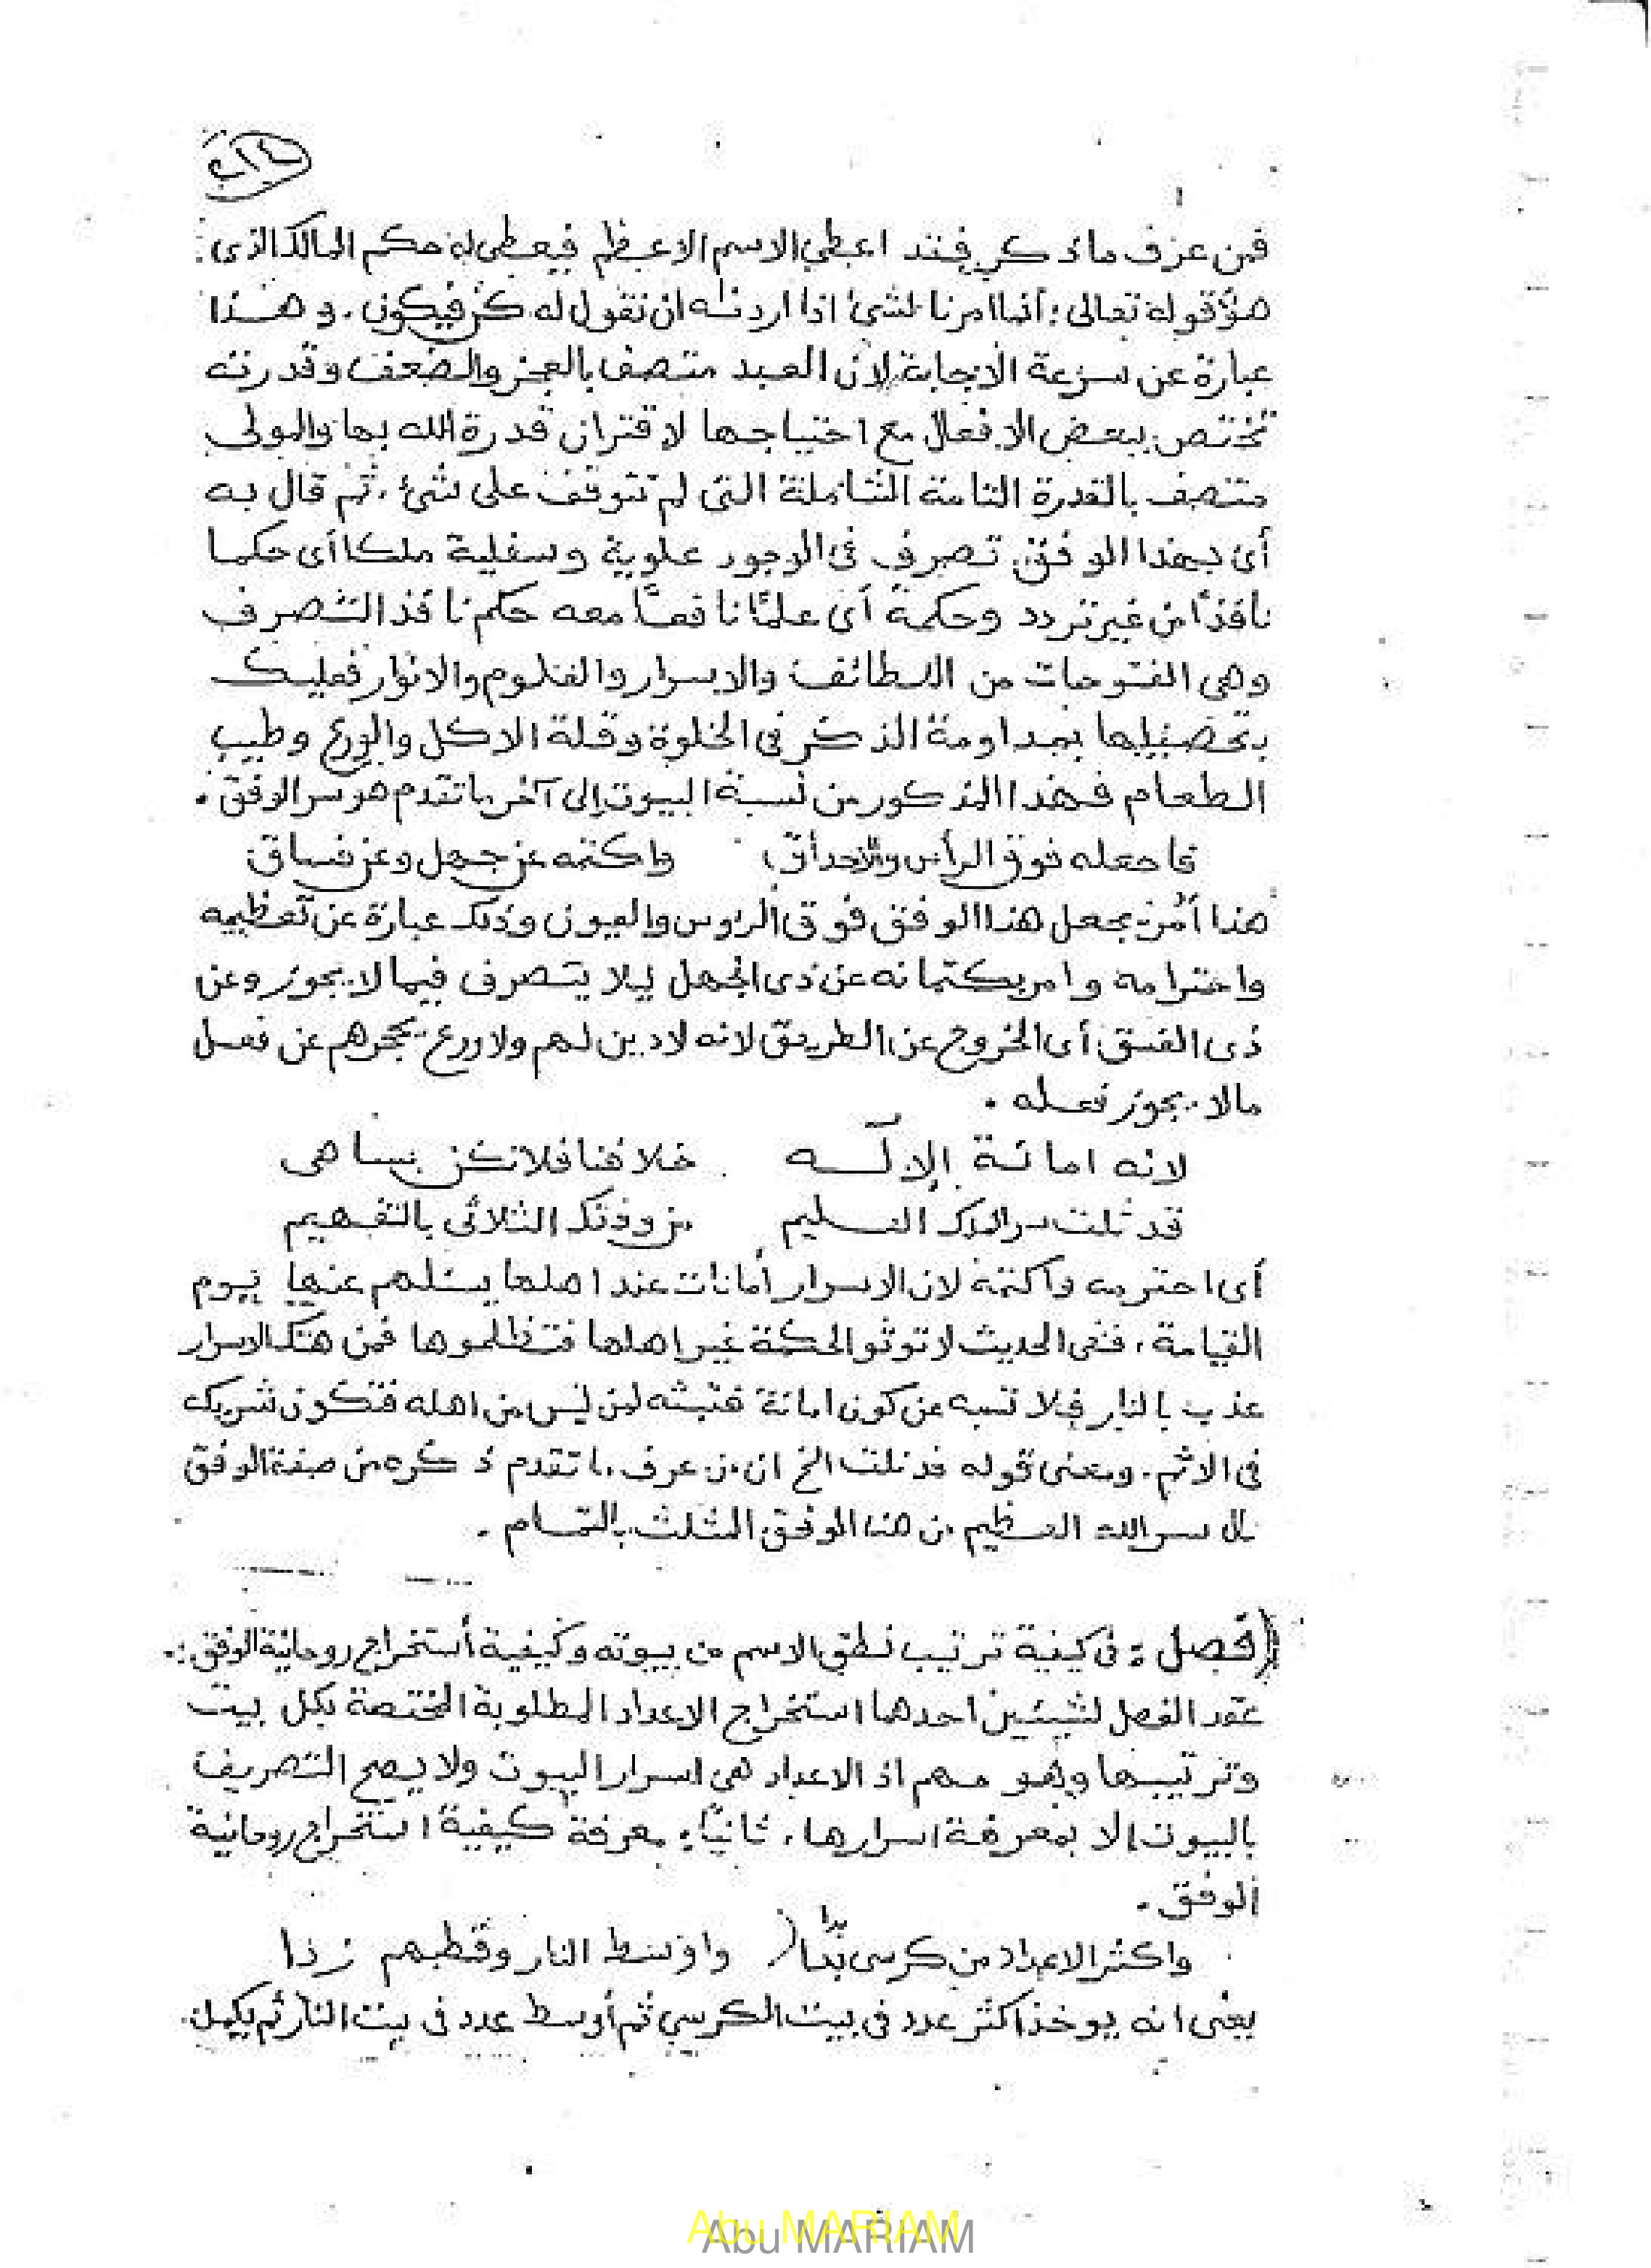 فمن عرف ما ذكر فقد اعطي الاسم الاعظم فيعطى له حكم المالك الذى
هو قوله تعالى : أنما امرنا لشئ اذا اردناه ان نقول له كن فيكون . و هذا
عبارة عن سرعة الاجابة لان العبد متصف بالعجز والضعف وقدرته
تختص ببعض الافعال مع احتياجها لاقتران قدرة الله بها والمولى
متصف بالقدرة التامة الشاملة التى لم تتوقف على شئ ، ثم قال به
أى بهذا الوفق تصرف فى الوجود علوية وسفلية ملكا أى حكما
نافذًا من غير تردد وحكمة أى علمًا نافعًا معه حكم نافذ التصرف
وهى الفتوحات من اللطائف والاسرار والعلوم والانوار فعليك
بتحصيلها بمداومة الذكر فى الخلوة وقلة الاكل والورع وطيب
الطعام فهذا المذكور من نسبة البيوت إلى آخر ما تقدم هو سر الوفق .
فاجعله فوق الرأس والاحداق واكتمه عن جهل وعن فساق
هذا أمر بجعل هذا الوفق فوق الرؤس والعيون وذلك عبارة عن تعظيمه
واحترامه وامر بكتمانه عن ذى الجهل ليلا يتصرف فيما لا يجوز وعن
ذى الفسق أى الخروج عن الطريق لانه لا دين لهم ولا ورع يحجرهم عن فعل
مالا يجوز فعله .
لانه امانة الإلـه خلافنا فلا تكن بساهى
قد نلت سر الملك العليم من وفقك الثلاثى بالتفهيم
أى احترمه واكتمه لان الاسرار أمانات عند اهلها يسئلهم عنها يوم
القيامة ، ففى الحديث لا توتو الحكمة غير اهلها فتظلموها فمن هتك الاسرار
عذب بالنار فلا تسه عن كون امانة فتبثه لمن ليس من اهله فتكون شريك
فى الاثم . ومعنى قوله قد نلت الخ ان من عرف ما تقدم ذكره من صفة الوفق
نال سر الله العظيم من هذا الوفق المثلث بالتمام .
(فصل : فى كيفية ترتيب نطق الاسم من بيوته وكيفية أستخراج روحانية الوفق :.
عقد الفصل لشيئين احدها استخراج الاعداد المطلوبة المختصة بكل بيت
وترتيبها وهو مهم اذ الاعداد هى اسرار البيوت ولا يصح التصريف
بالبيوت إلا بمعرفة اسرارها ، ثانيًا : معرفة كيفية استخراج روحانية
الوفق .
واكثر الاعداد من كرسى بدا واوسط النار وقطبهم زذا
يعنى انه يوخذ اكثر عدد فى بيت الكرسي ثم أوسط عدد فى بيت النار ثم يكمل
Abu MARIAM